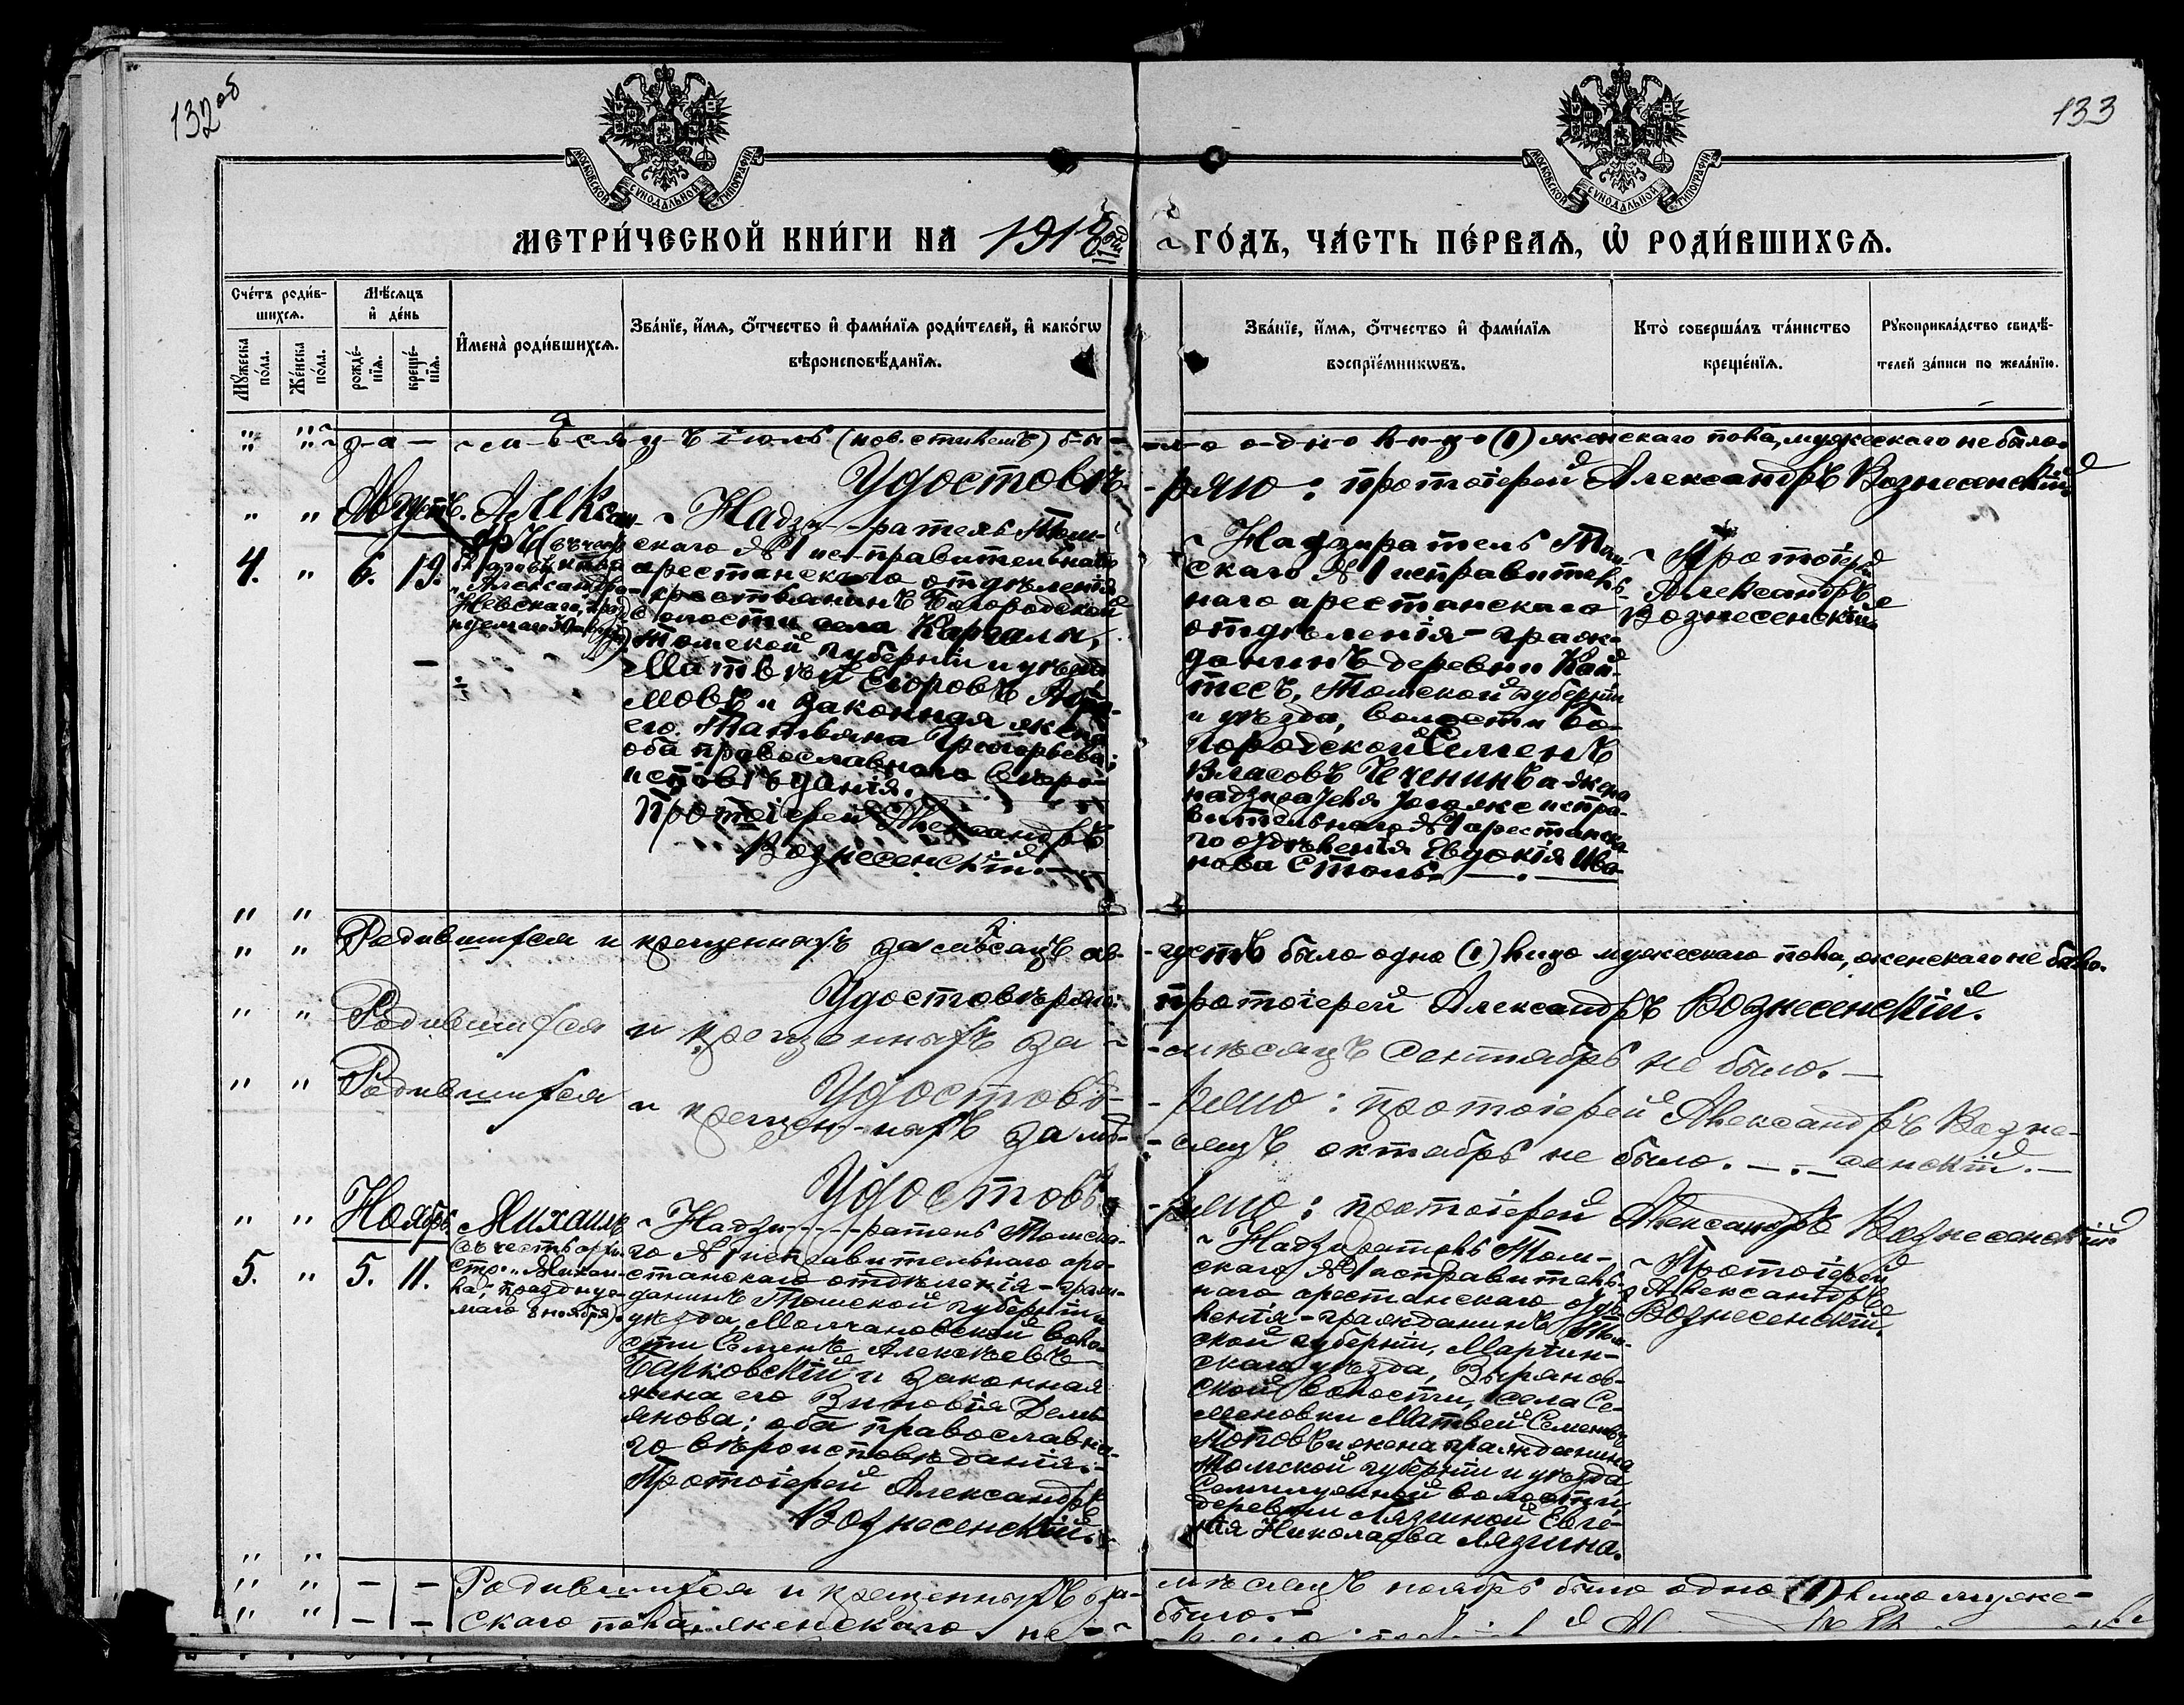 132 об
133
МОСКОВСКОЙ СѴНОДАЛЬНОЙ ТИПОГРАФІИ
МОСКОВСКОЙ СѴНОДАЛЬНОЙ ТИПОГРАФІИ
МЕТРИ́ЧЕСКОЙ КНИ́ГИ НА 191
ГО́ДЪ, ЧА́СТЬ ПЕ́РВАЯ, Ѡ҆ РОДИ́ВШИХСЯ.
Сче́тъ роди́в-
шихся.
Мѣ́сяцъ
и҆ де́нь
Мꙋ́жеска
по́ла.
Же́нска
по́ла.
рожде́-
нїя.
креще́-
нїя.
И҆мена̀ роди́вшихся.
Зва́нїе, и҆́мя, ѻ҆́тчество и҆ фами́лїя роди́телей, и҆ како́гѡ
вѣроисповѣ́данїя.
Зва́нїе, и҆́мя, ѻ҆́тчество и҆ фами́лїя
воспрїе́мникѡвъ.
Кто̀ соверша́лъ та́инство
креще́нїя.
Рꙋкоприкла́дство свидѣ́-
телей за́писи по жела́нїю.
за мѣсяцъ іюль (нов. стилемъ) бы-
ло одно лицо (1) женскаго пола, мужескаго не было.
Удостовѣ-
ряю: протоіерей Александръ Вознесенскій.
Августъ.
4. " 6. 19.
Алексан-
дръ (въ честь
Александра
Невскаго, праз-
~ Надзиратель Том-
скаго №1 исправительнаго
арестанскаго отдѣленія
крестьянинъ Богородской
волости села Каргалы,
Томской губерніи и уѣзда
Матвѣй Егоровъ
мовъ и законная жена
его Татьяна Григорьева;
оба православнаго вѣро-
исповѣданія.
Протоіерей Александръ
Вознесенскій.
~ Надзиратель Том-
скаго №1 исправитель-
наго арестанскаго
отдѣленія – граж-
данинъ деревни Кай-
тесъ, Томской губерніи
и уѣзда, волости Бо-
городской Семенъ
Власовъ Чеченинъ а жена
надзирателя того же испра-
вительнаго №1 арестанска-
го отдѣленія Евдокія Ива-
нова Столь.
~ Протоіерей
Александръ
Вознесенскій
Родившихся и крещенныхъ за мѣсяцъ ав-
густъ было одно (1) лицо мужескаго пола, женскаго не было.
Удостовѣряю:
протоіерей Александръ Вознесенскій.
Родившихся и крещенныхъ за
мѣсяцъ сентябрь не было. —
Удостовѣ-
ряю: протоіерей Александръ Возне-
сенскій. —
Родившихся и крещенныхъ за мѣ-
сяцъ октябрь не было. —
Удостовѣ-
ряю: протоіерей Александръ Вознесенскій.
Ноябрь
5. " 5. 11.
Михаилъ
(въ честь архи-
стр. „Михаи-
ла", праздную-
маго 8 ноября).
~ Надзиратель Томска-
го №1 исправительнаго аре-
станскаго отдѣленія – граж-
данинъ Томской губерніи и
уѣзда, Молчановской воло-
сти Семенъ Алексѣевъ
законная
жена его Зиновія Демь-
янова; оба православна-
го вѣроисповѣданія. –
Протоіерей Александръ
Вознесенскій.
~ Надзиратель Том-
скаго №1 исправитель-
наго арестанскаго отдѣ-
ленія – гражданинъ Том-
ской губерніи, Маріин-
скаго уѣзда, Зырянов-
ской волости, села Се-
меновки Матвей Семеновъ
Поповъ и жена гражданина
Томской губерніи и уѣзда
Семилужной волости,
деревни Лязгиной Евге-
нія Николаева Лязгина.
~ Протоіерей
Александръ
Вознесенскій.
Родившихся и крещенныхъ за
мѣсяцъ ноябрь было одно (1) лицо муже-
скаго пола, женскаго не
было. –